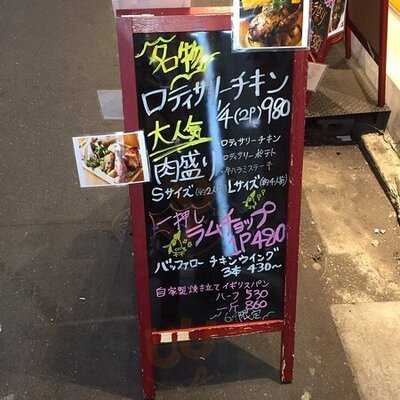 名物
ロティサリーチキン
1/4(2P)980
大人気
肉盛り
ロティサリーチキン
ロティサリーポテト
牛ハラミステーキ
Sサイズ(約2人前) Lサイズ(約4人前)
一押し
ラムチョップ
1P480
バッファローチキンウイング
3本 430〜
自家製焼き立てイギリスパン
ハーフ 530
一斤 860